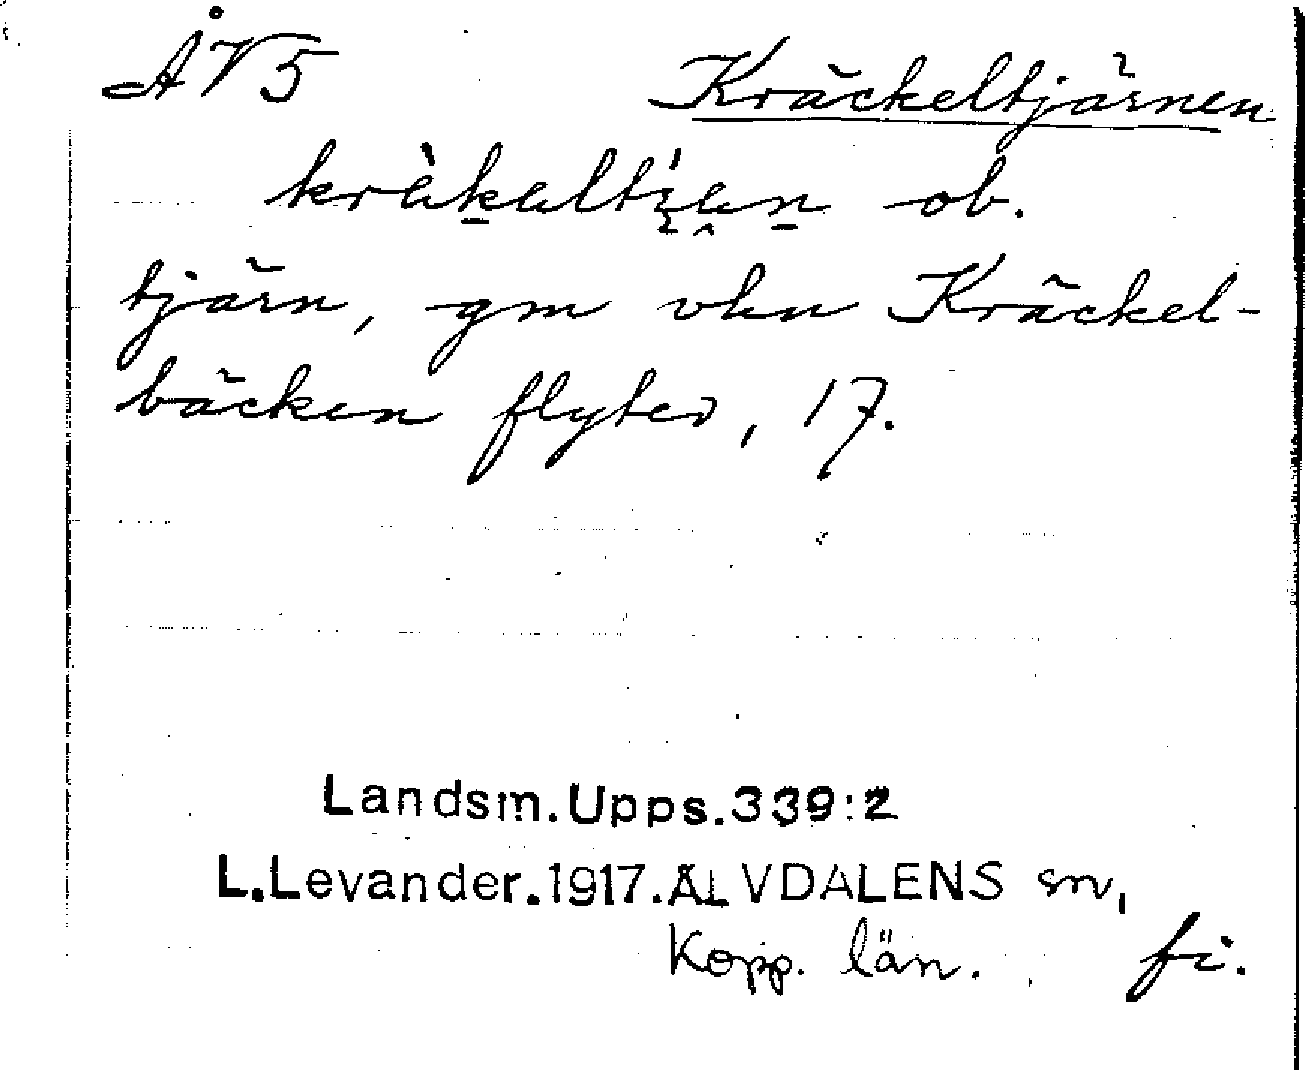 ÅV5 Kräckeltjärnen
ob.
tjärn, gm vkn Kräckel-
bäcken flyter, 17.
Landsm.Upps.339:2
L.Levander.1917.ÄLVDALENS sn,
Kopp. län. fi.